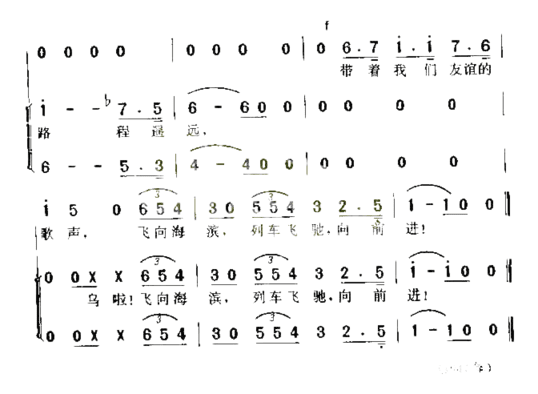 f
0 0 0 0 | 0 0 0 0 | 0 6.7 i.i 7.6 |
带着 我们 友谊的
i - - b7.5 | 6 - 6 0 0 | 0 0 0 0 |
路 程遥 远,
6 - - 5.3 | 4 - 4 0 0 | 0 0 0 0 |
i 5 0 6 5 4 | 3 0 5 5 4 3 2.5 | 1 - 1 0 0 ‖
歌 声, 飞向海 滨, 列车飞 驰,向 前 进!
0 0 X X 6 5 4 | 3 0 5 5 4 3 2.5 | i - i 0 0 ‖
乌 啦!飞向海 滨, 列车飞 驰,向 前 进!
0 0 X X 6 5 4 | 3 0 5 5 4 3 2.5 | 1 - 1 0 0 ‖